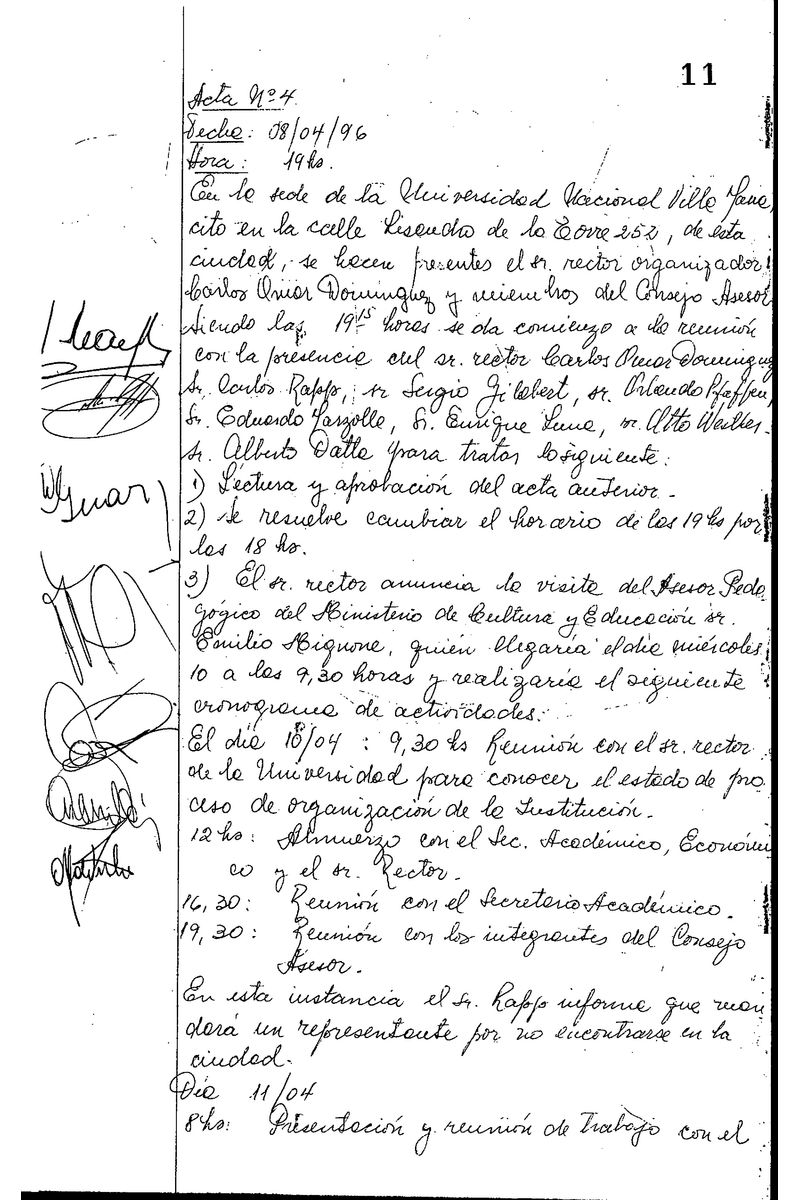 11
Acta Nº 4
Fecha: 08/04/96
Hora: 19 hs.
En la sede de la Universidad Nacional Villa María,
cito en la calle Lisandro de la Torre 252, de esta
ciudad, se hacen presentes el sr. rector organizador
Carlos Omar Domínguez y miembros del Consejo Asesor
siendo las 19 15 horas se da comienzo a la reunión
con la presencia del sr. rector Carlos Omar Domínguez
Sr. Carlos Rapp, sr Sergio Gilabert, sr. Orlando Pfaffen,
Sr. Eduardo Marzolla, Sr. Enrique Luna, sr. Otto Wester
sr. Alberto Datta para tratar lo siguiente:
1) Lectura y aprobación del acta anterior.-
2) Se resuelve cambiar el horario de las 19 hs por
las 18 hs.
3) El sr. rector anuncia la visita del Asesor Peda
gógico del Ministerio de Cultura y Educación sr.
Emilio Mignone, quién llegaría el día miércoles
10 a las 9,30 horas y realizaría el siguiente
cronograma de actividades:
El día 10/04 : 9,30 hs Reunión con el sr. rector
de la Universidad para conocer el estado de pro
ceso de organización de la Institución.
12 hs: Almuerzo con el Sec. Académico, Económi
co y el sr. Rector.
16,30: Reunión con el Secretario Académico.
19,30: Reunión con los integrantes del Consejo
Asesor.
En esta instancia el sr. Rapp informa que man
dará un representante por no encontrarse en la
ciudad.
Día 11/04
8 hs: Presentación y reunión de Trabajo con el